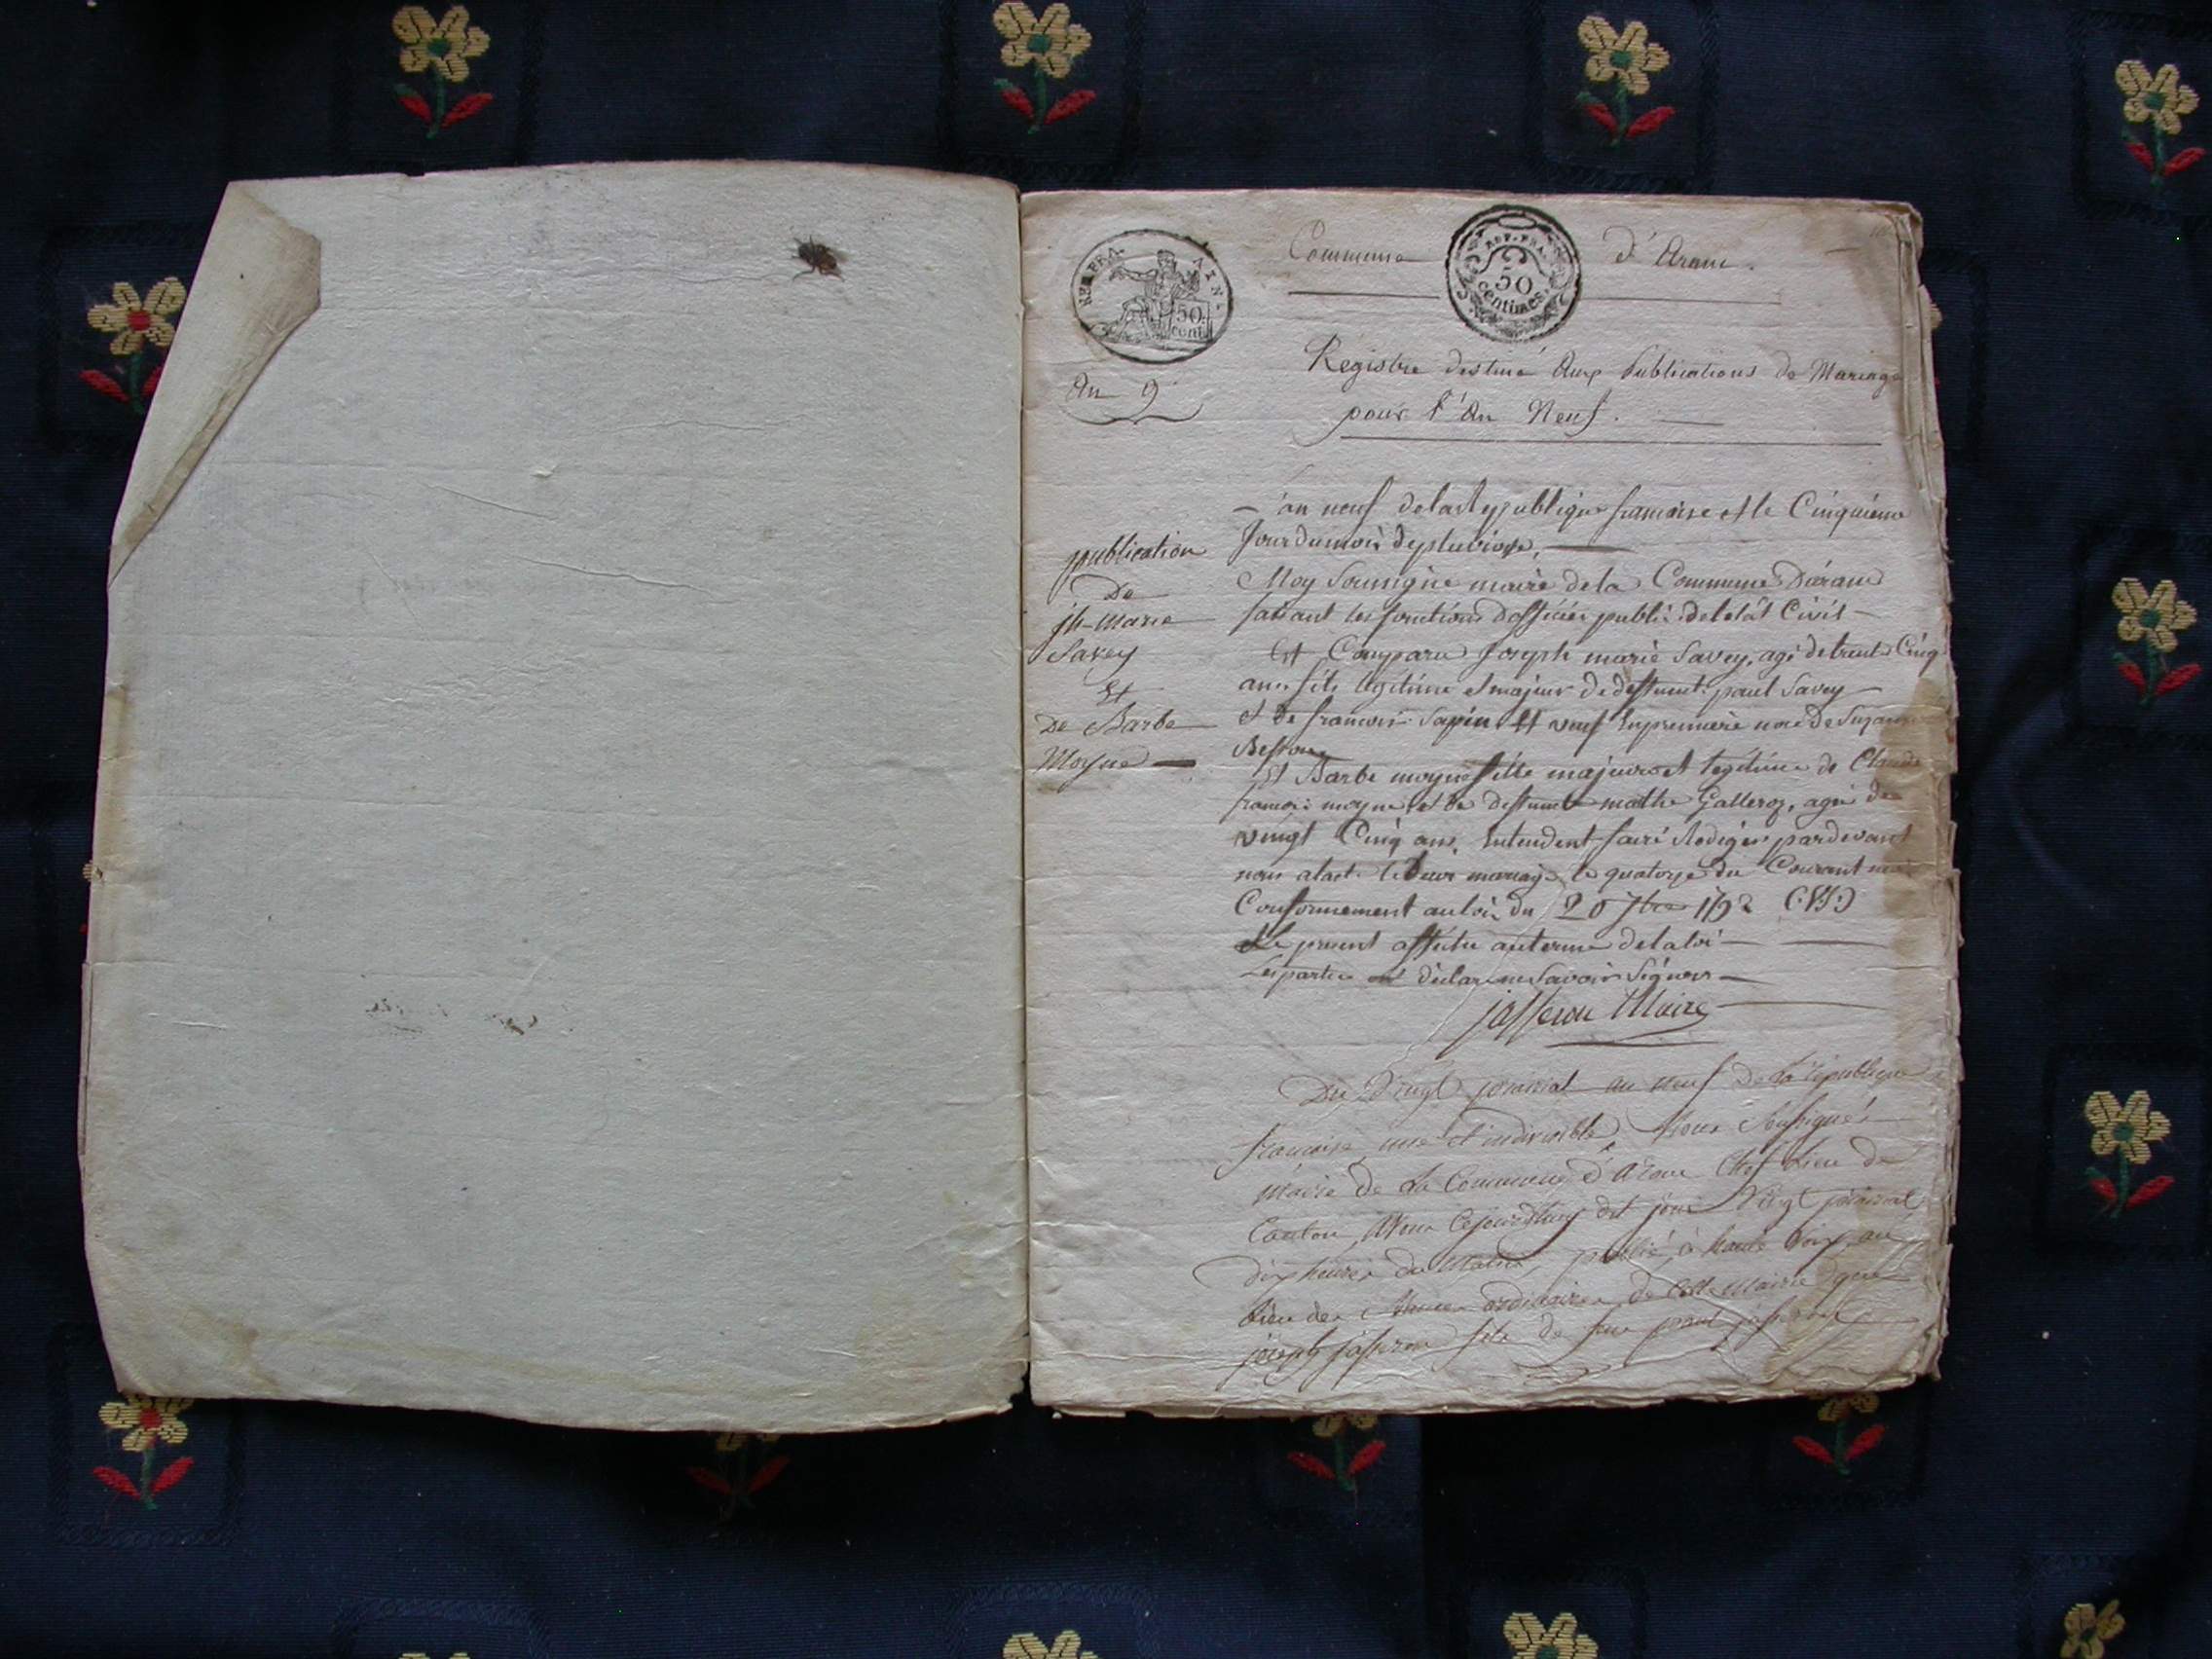 REP. FRA.
50
centimes
REP. FRA. AIN
50
cent.
Commune d'Arauc.
An 9
Registre destiné Aux Publications de Mariage
pour l'An Neuf.
L'an neuf de la Republique francoise et le Cinquieme
Jour du mois de pluviose,
publication
De
jh-Marie
Savey
Et
De Barbe
Moyne
Moy Soussigne maire de la Commune Darauc
faisant les fonctions dofficier public de letat Civil
Est Comparu Joseph marie Savey, agé de trente Cinq
ans fils legitime et majeur de deffunt paul Savey
et de francoise Sapin Et veuf en premiere noce de Suzanne
Et Barbe moyne fille majeure et legitime de Claude
francois moyne et de deffunte mathe Galleroz, agée de
vingt Cinq ans, Entendent faire Rediger pardevant
nous alact de leur mariage le quatorze du Courant mois
Conformement au loix du 20 7bre 1792 (V.S.)
Le present affiche au terme de la loi
Les parties ont declare ne Savoir Signer
jasseron Maire
Du Vingt prairial an neuf de la republique
francoise une et indivisible, Nous Soussigné
Maire de la Commune d'Arauc Chef Lieu de
Canton, Avons Cejourdhuy dit jour Vingt prairial
dix heures du Matin, publié à haute voix, au
lieu des Séances ordinaires de Cette Mairie que
joseph jasseron fils de feu paul jasseron